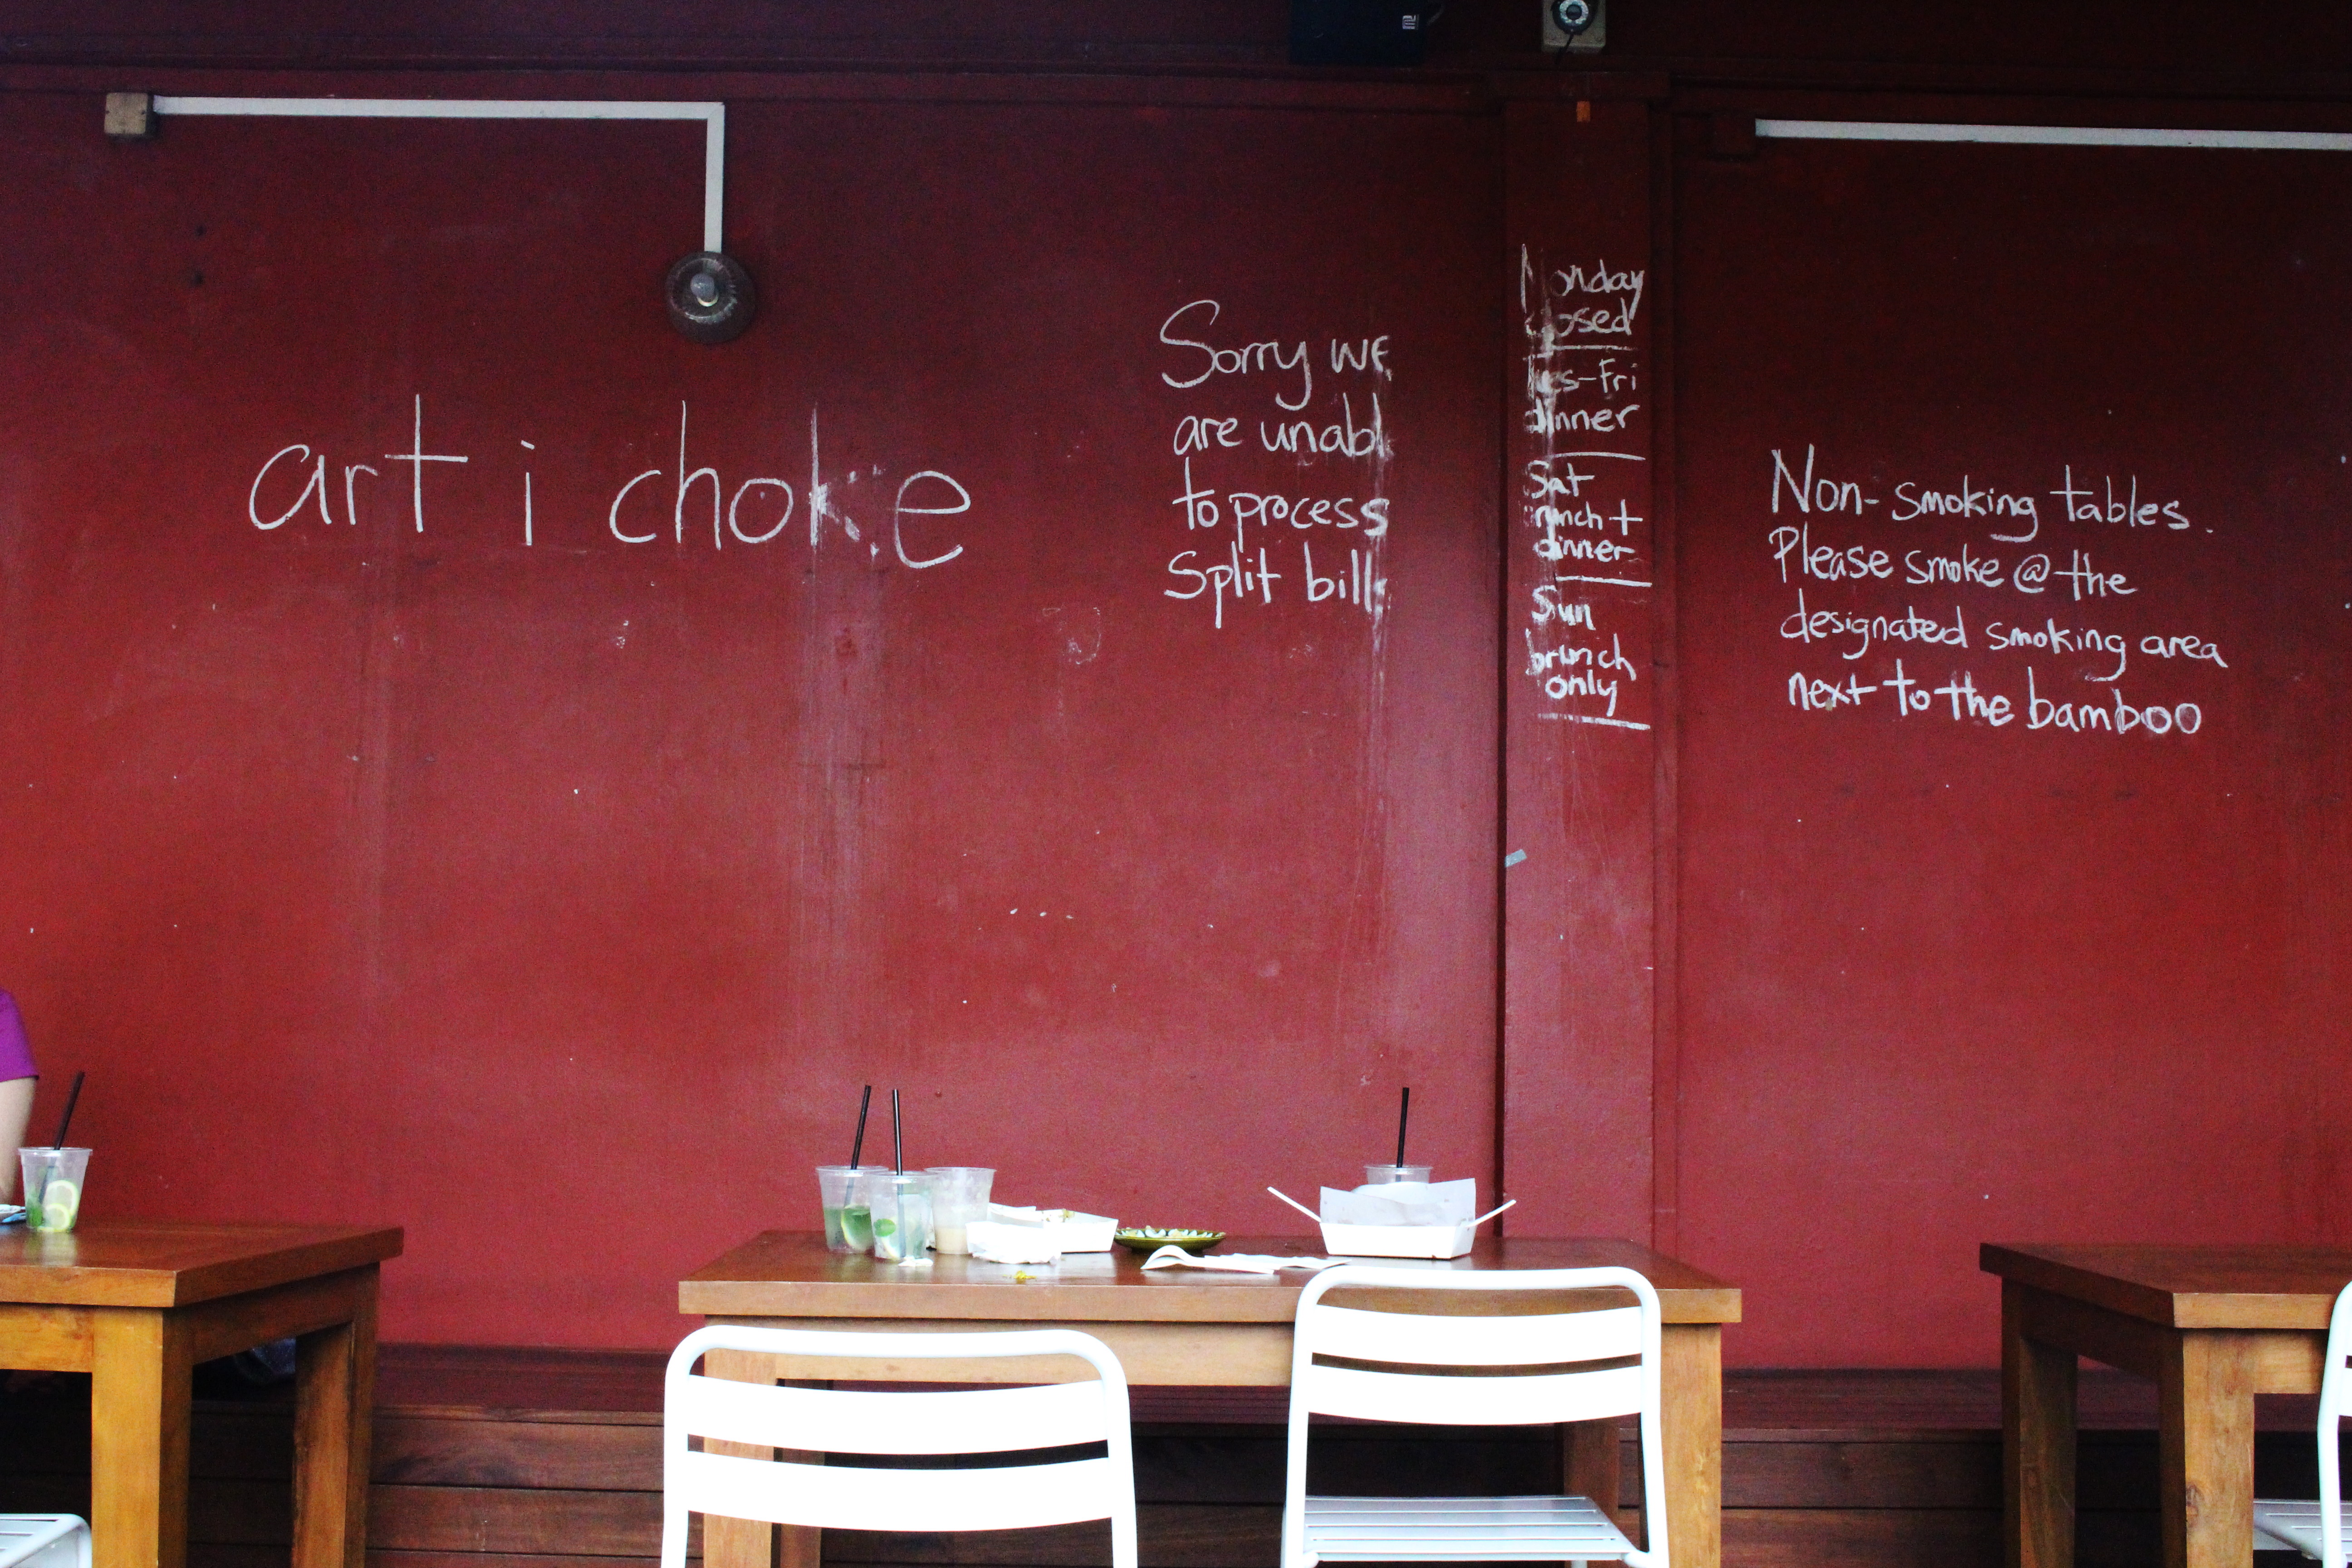 art i choke
Sorry we
are unable
to process
Split bills
Monday
closed
Tues-Fri
dinner
Sat
brunch +
dinner
Sun
brunch
only
Non-smoking tables.
Please smoke @ the
designated smoking area
next to the bamboo